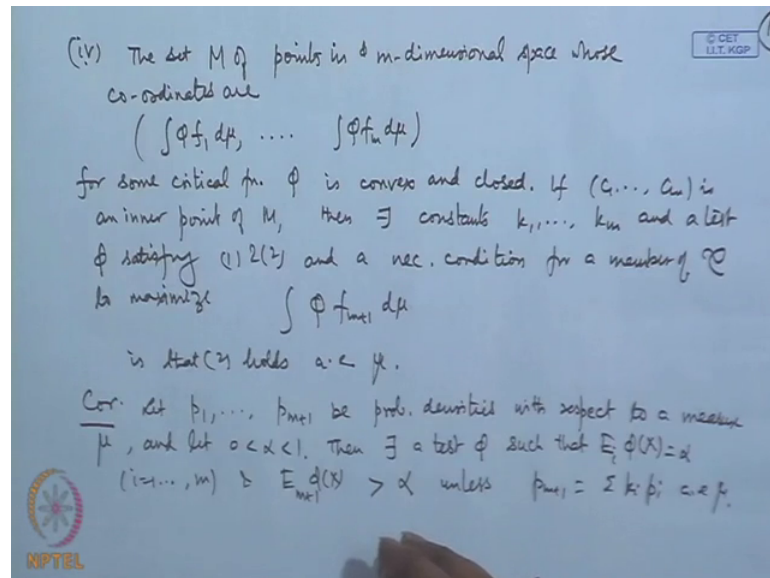 © CET
I.I.T. KGP
(iv) The set M of points in m-dimensional space whose
co-ordinates are
( ∫ φ f₁ dμ, .... ∫ φ fₘ dμ )
for some critical fn. φ is convex and closed. If (c₁..., cₘ) is
an inner point of M, then ∃ constants k₁,..., kₘ and a test
φ satisfying (1) & (2) and a nec. condition for a member of C
to maximize ∫ φ fₘ₊₁ dμ
is that (2) holds a.e μ.
Cor. Let p₁,..., pₘ₊₁ be prob. densities with respect to a measure
μ, and let 0<α<1. Then ∃ a test φ such that Eᵢ φ(X)=α
(i=1..., m) & Eₘ₊₁ φ(X) > α unless pₘ₊₁ = Σ kᵢ pᵢ a.e μ.
NPTEL